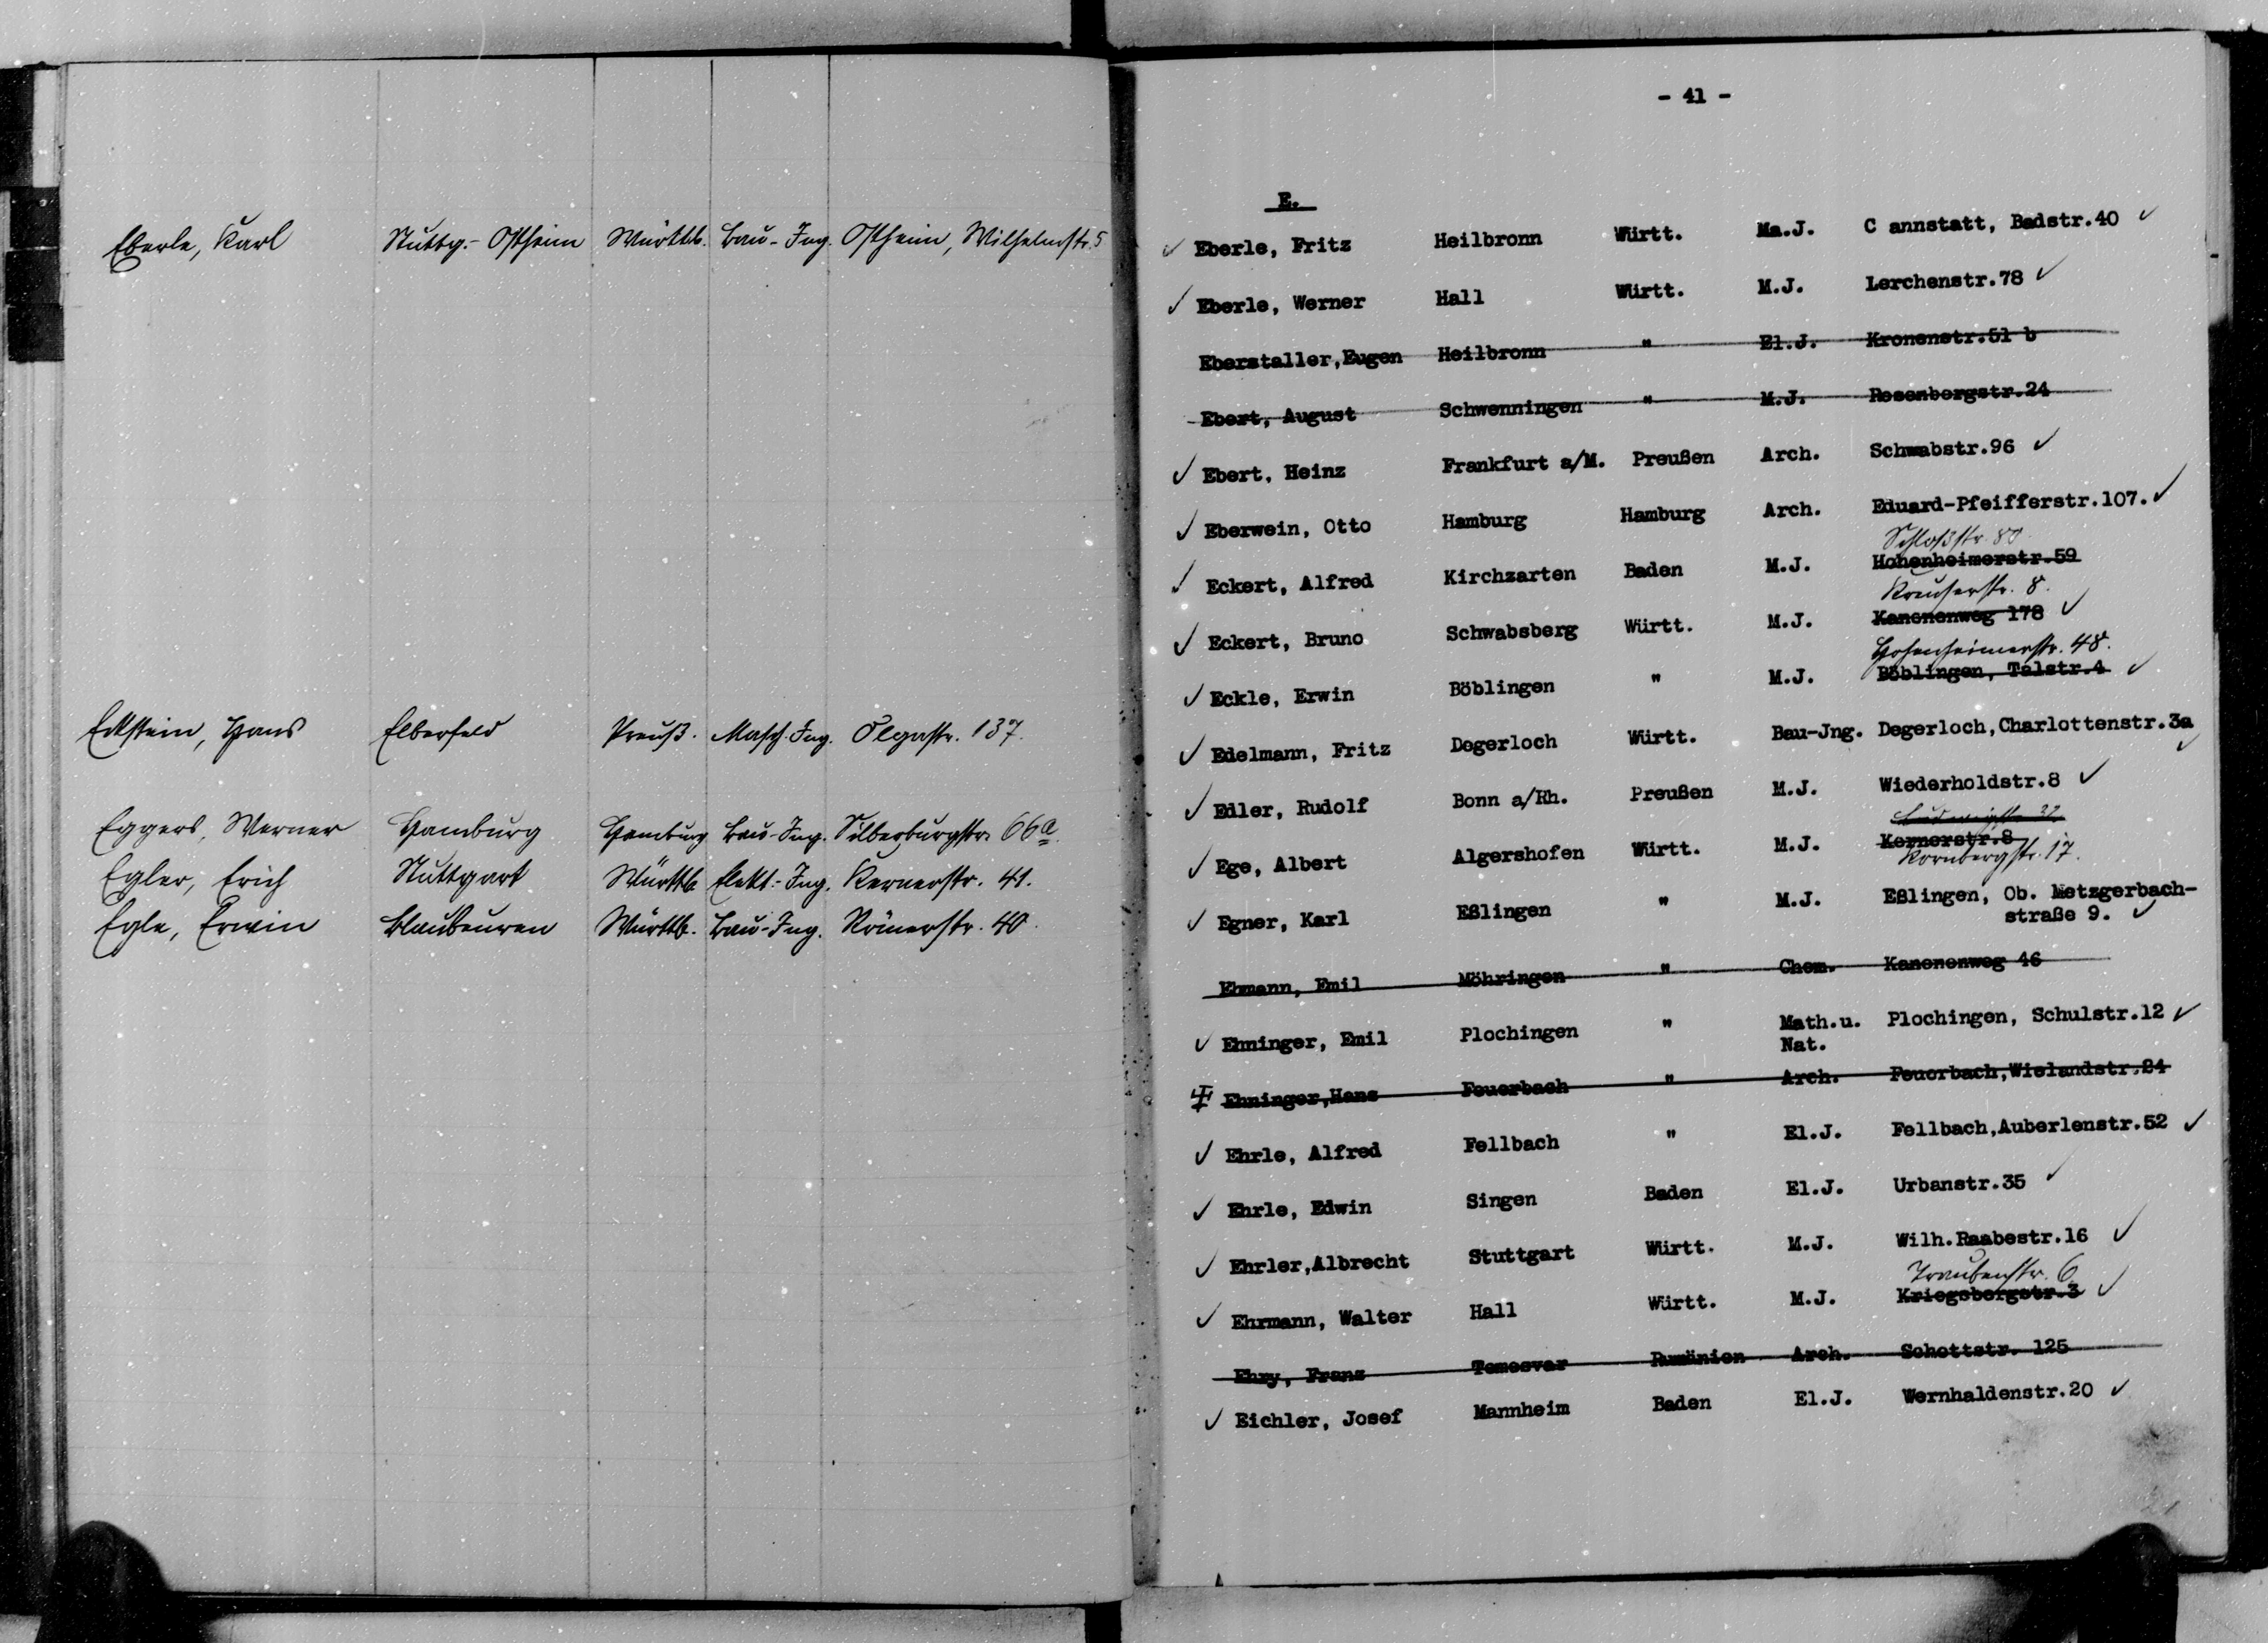 Eberle, Karl Stuttg.- Ostheim Württb. Bau-Ing. Ostheim, Wilhelmstr. 5
Eckstein, Hans Elberfeld Preuß. Masch.Ing. Olgastr. 137.
Eggers, Werner Hamburg Hamburg Bau-Ing. Silberburgstr. 66a.
Egler, Erich Stuttgart Württb. Elekt.-Ing. Kernerstr. 41.
Egle, Erwin Blaubeuren Württb. Bau-Ing. Römerstr. 40.
- 41 -
E.
✓ Eberle, Fritz Heilbronn Württ. Ma.J. C annstatt, Badstr.40 ✓
✓ Eberle, Werner Hall Württ. M.J. Lerchenstr.78 ✓
Eberstaller,Eugen Heilbronn " El.J. Kronenstr.51 b
Ebert, August Schwenningen " M.J. Rosenbergstr.24
✓ Ebert, Heinz Frankfurt a/M. Preußen Arch. Schwabstr.96 ✓
✓ Eberwein, Otto Hamburg Hamburg Arch. Eduard-Pfeifferstr.107. ✓
Schloßstr. 80
✓ Eckert, Alfred Kirchzarten Baden M.J. Hohenheimerstr.59
Kreuserstr. 8.
✓ Eckert, Bruno Schwabsberg Württ. M.J. Kanonenweg 178 ✓
Hohenheimerstr. 48.
✓ Eckle, Erwin Böblingen " M.J. Böblingen, Talstr.4 ✓
✓ Edelmann, Fritz Degerloch Württ. Bau-Jng. Degerloch,Charlottenstr.3a ✓
✓ Edler, Rudolf Bonn a/Rh. Preußen M.J. Wiederholdstr.8 ✓
✓ Ege, Albert Algershofen Württ. M.J. Kernerstr.8
Kornbergstr. 17.
✓ Egner, Karl Eßlingen " M.J. Eßlingen, Ob. Metzgerbach-
straße 9. ✓
Ehmann, Emil Möhringen " Chem. Kanonenweg 46
✓ Ehninger, Emil Plochingen " Math.u. Plochingen, Schulstr.12 ✓
Nat.
Ehninger,Hans Feuerbach " Arch. Feuerbach,Wielandstr.24
✓ Ehrle, Alfred Fellbach " El.J. Fellbach,Auberlenstr.52 ✓
✓ Ehrle, Edwin Singen Baden El.J. Urbanstr.35 ✓
✓ Ehrler,Albrecht Stuttgart Württ. M.J. Wilh.Raabestr.16 ✓
Traubenstr. 6
✓ Ehrmann, Walter Hall Württ. M.J. Kriegsbergstr.3 ✓
Ehry, Franz Temesvar Rumänien Arch. Schottstr. 125
✓ Eichler, Josef Mannheim Baden El.J. Wernhaldenstr.20 ✓